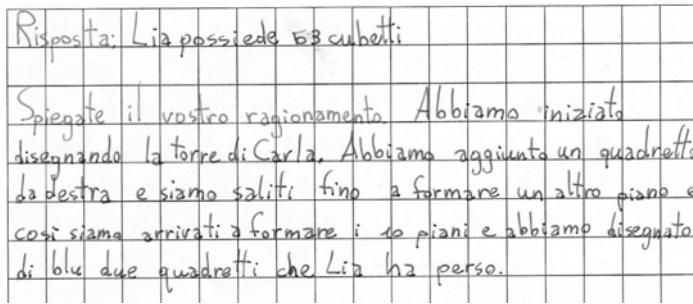 Risposta: Lia possiede 53 cubetti
Spiegate il vostro ragionamento. Abbiamo iniziato
disegnando la torre di Carla. Abbiamo aggiunto un quadretto
da destra e siamo saliti fino a formare un altro piano e
così siamo arrivati a formare i 10 piani e abbiamo disegnato
di blu due quadretti che Lia ha perso.